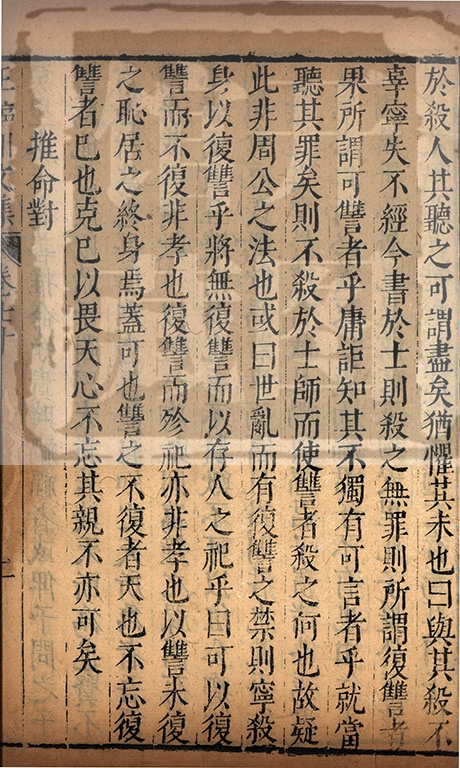 於殺人其聽之可謂盡矣猶懼其未也曰與其殺不
辜寧失不經今書於士則殺之無罪則所謂復讐者
果所謂可讐者乎庸詎知其不獨有可言者乎就當
聽其罪矣則不殺於士師而使讐者殺之何也故疑
此非周公之法也或曰世亂而有復讐之禁則寧殺
身以復讐乎將無復讐而以存人之祀乎曰可以復
讐而不復非孝也復讐而殄祀亦非孝也以讐未復
之恥居之終身焉蓋可也讐之不復者天也不忘復
讐者已也克已以畏天心不忘其親不亦可矣
推命對
王臨川文集 卷七十